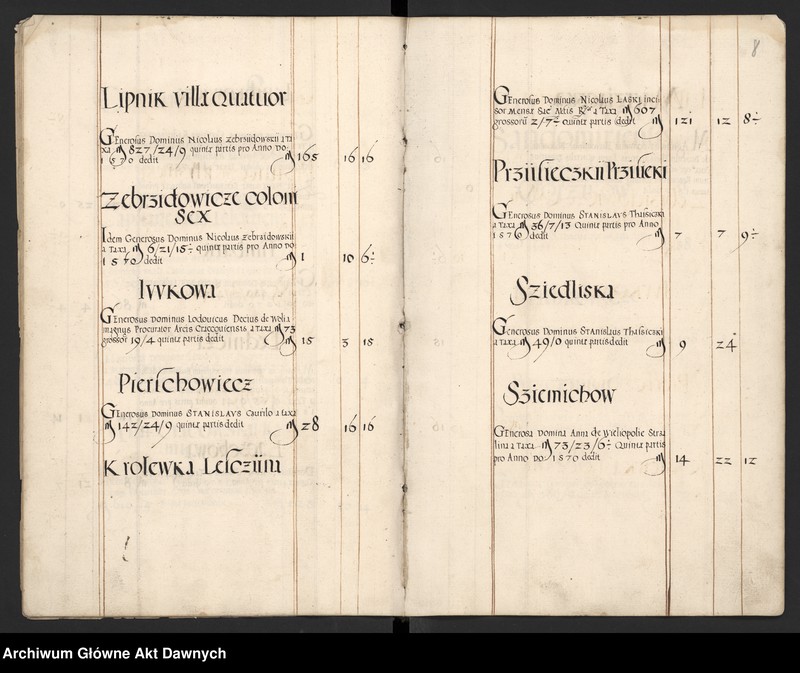 Lipnik villæ Quatuor
Generosus Dominus Nicolaus Zebrzidowskii a ta
xa M 827/24/9 quintæ partis pro Anno Do:
1570 dedit M 165 16 16
Zebrzidowicze coloni
sex
Idem Generosus Dominus Nicolaus Zebrzidowskii
a taxa M 6/21/15÷ quintæ partis pro Anno Do
1570 dedit M 1 10 6÷
Ivvkowa
Generosus Dominus Lodovicus Decius de Wolia
magnus Procurator Arcis Cracoviensis a taxa M 73
grossor 19/4 quintæ partis dedit M 15 3 15
Pierschowiecz
Generosus Dominus STANISLAVS a taxa
M 142/24/9 quintæ partis dedit M 28 16 16
Krolewka Lesczÿna
8
Generosus Dominus Nicolaus LASKI inci
sor Mensæ Sac a Taxa M 607
grossorū 2/7 quintæ partis dedit M 121 12 8÷
Generosus Dominus STANISLAVS
a Taxa M 36/7/13 Quintæ partis pro Anno
1570 dedit M 7 7 9÷
Sziedliska
Generosus Dominus Stanislaus
a taxa M 49/0 quintæ partis dedit M 9 24
Sziemichow
Generosa Domina Anna de Wielopolie Stra
lina a taxa M 73/23/6÷ Quintæ partis
pro Anno Do 1570 dedit M 14 22 12
Archiwum Główne Akt Dawnych